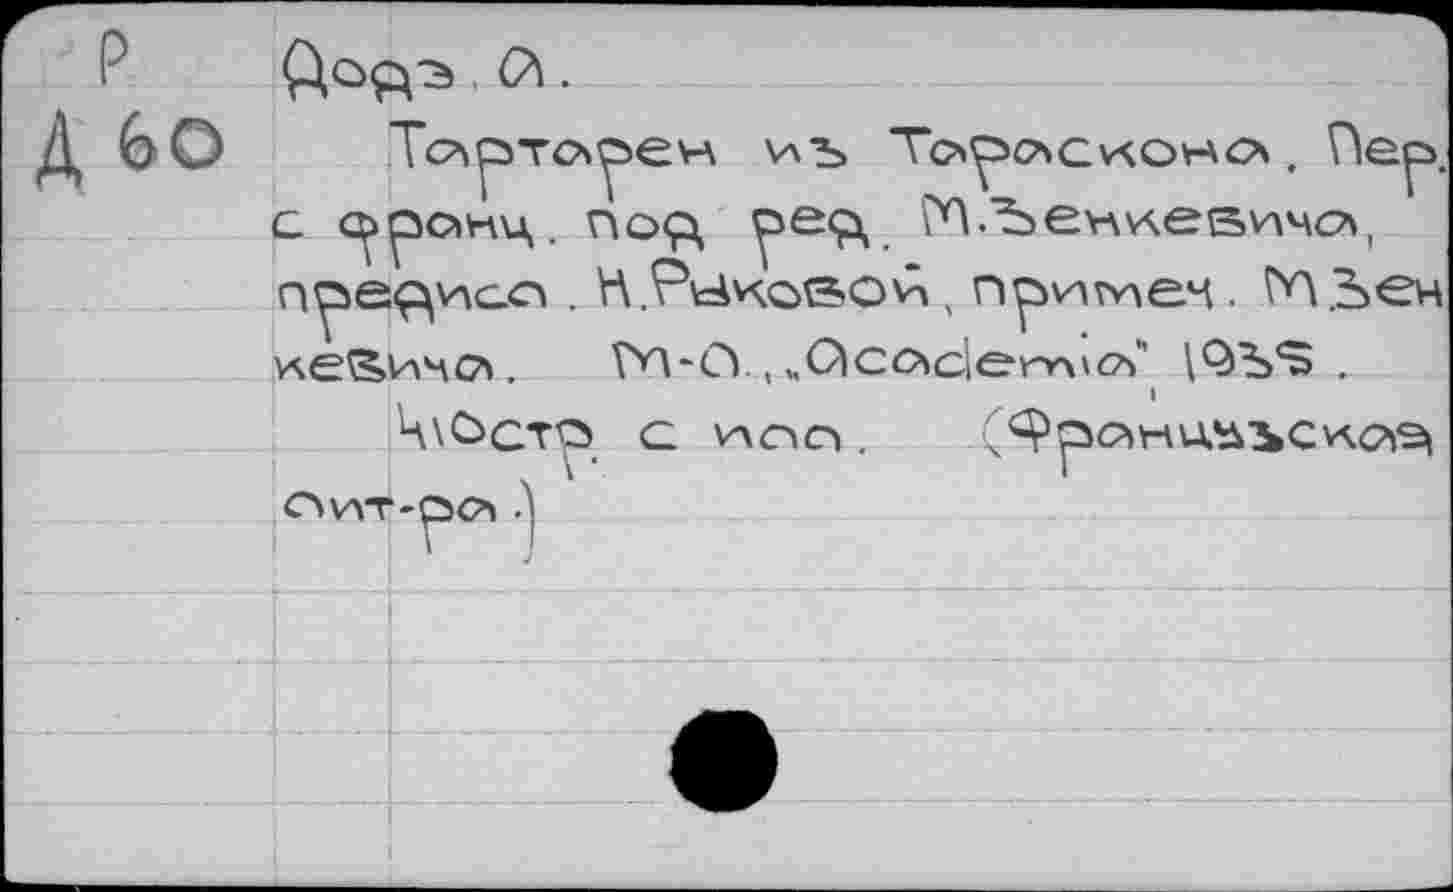 Р Додэ, А.
Д 60 Тартарен из Тараскона. Пер.
с франц. под ред. М.Зенкевича,
предисл. Н.Рыковой, примеч. М.Зен
кевича. М-Л., „Academia" 1935.
с илл. (Французская
лит-ра.)